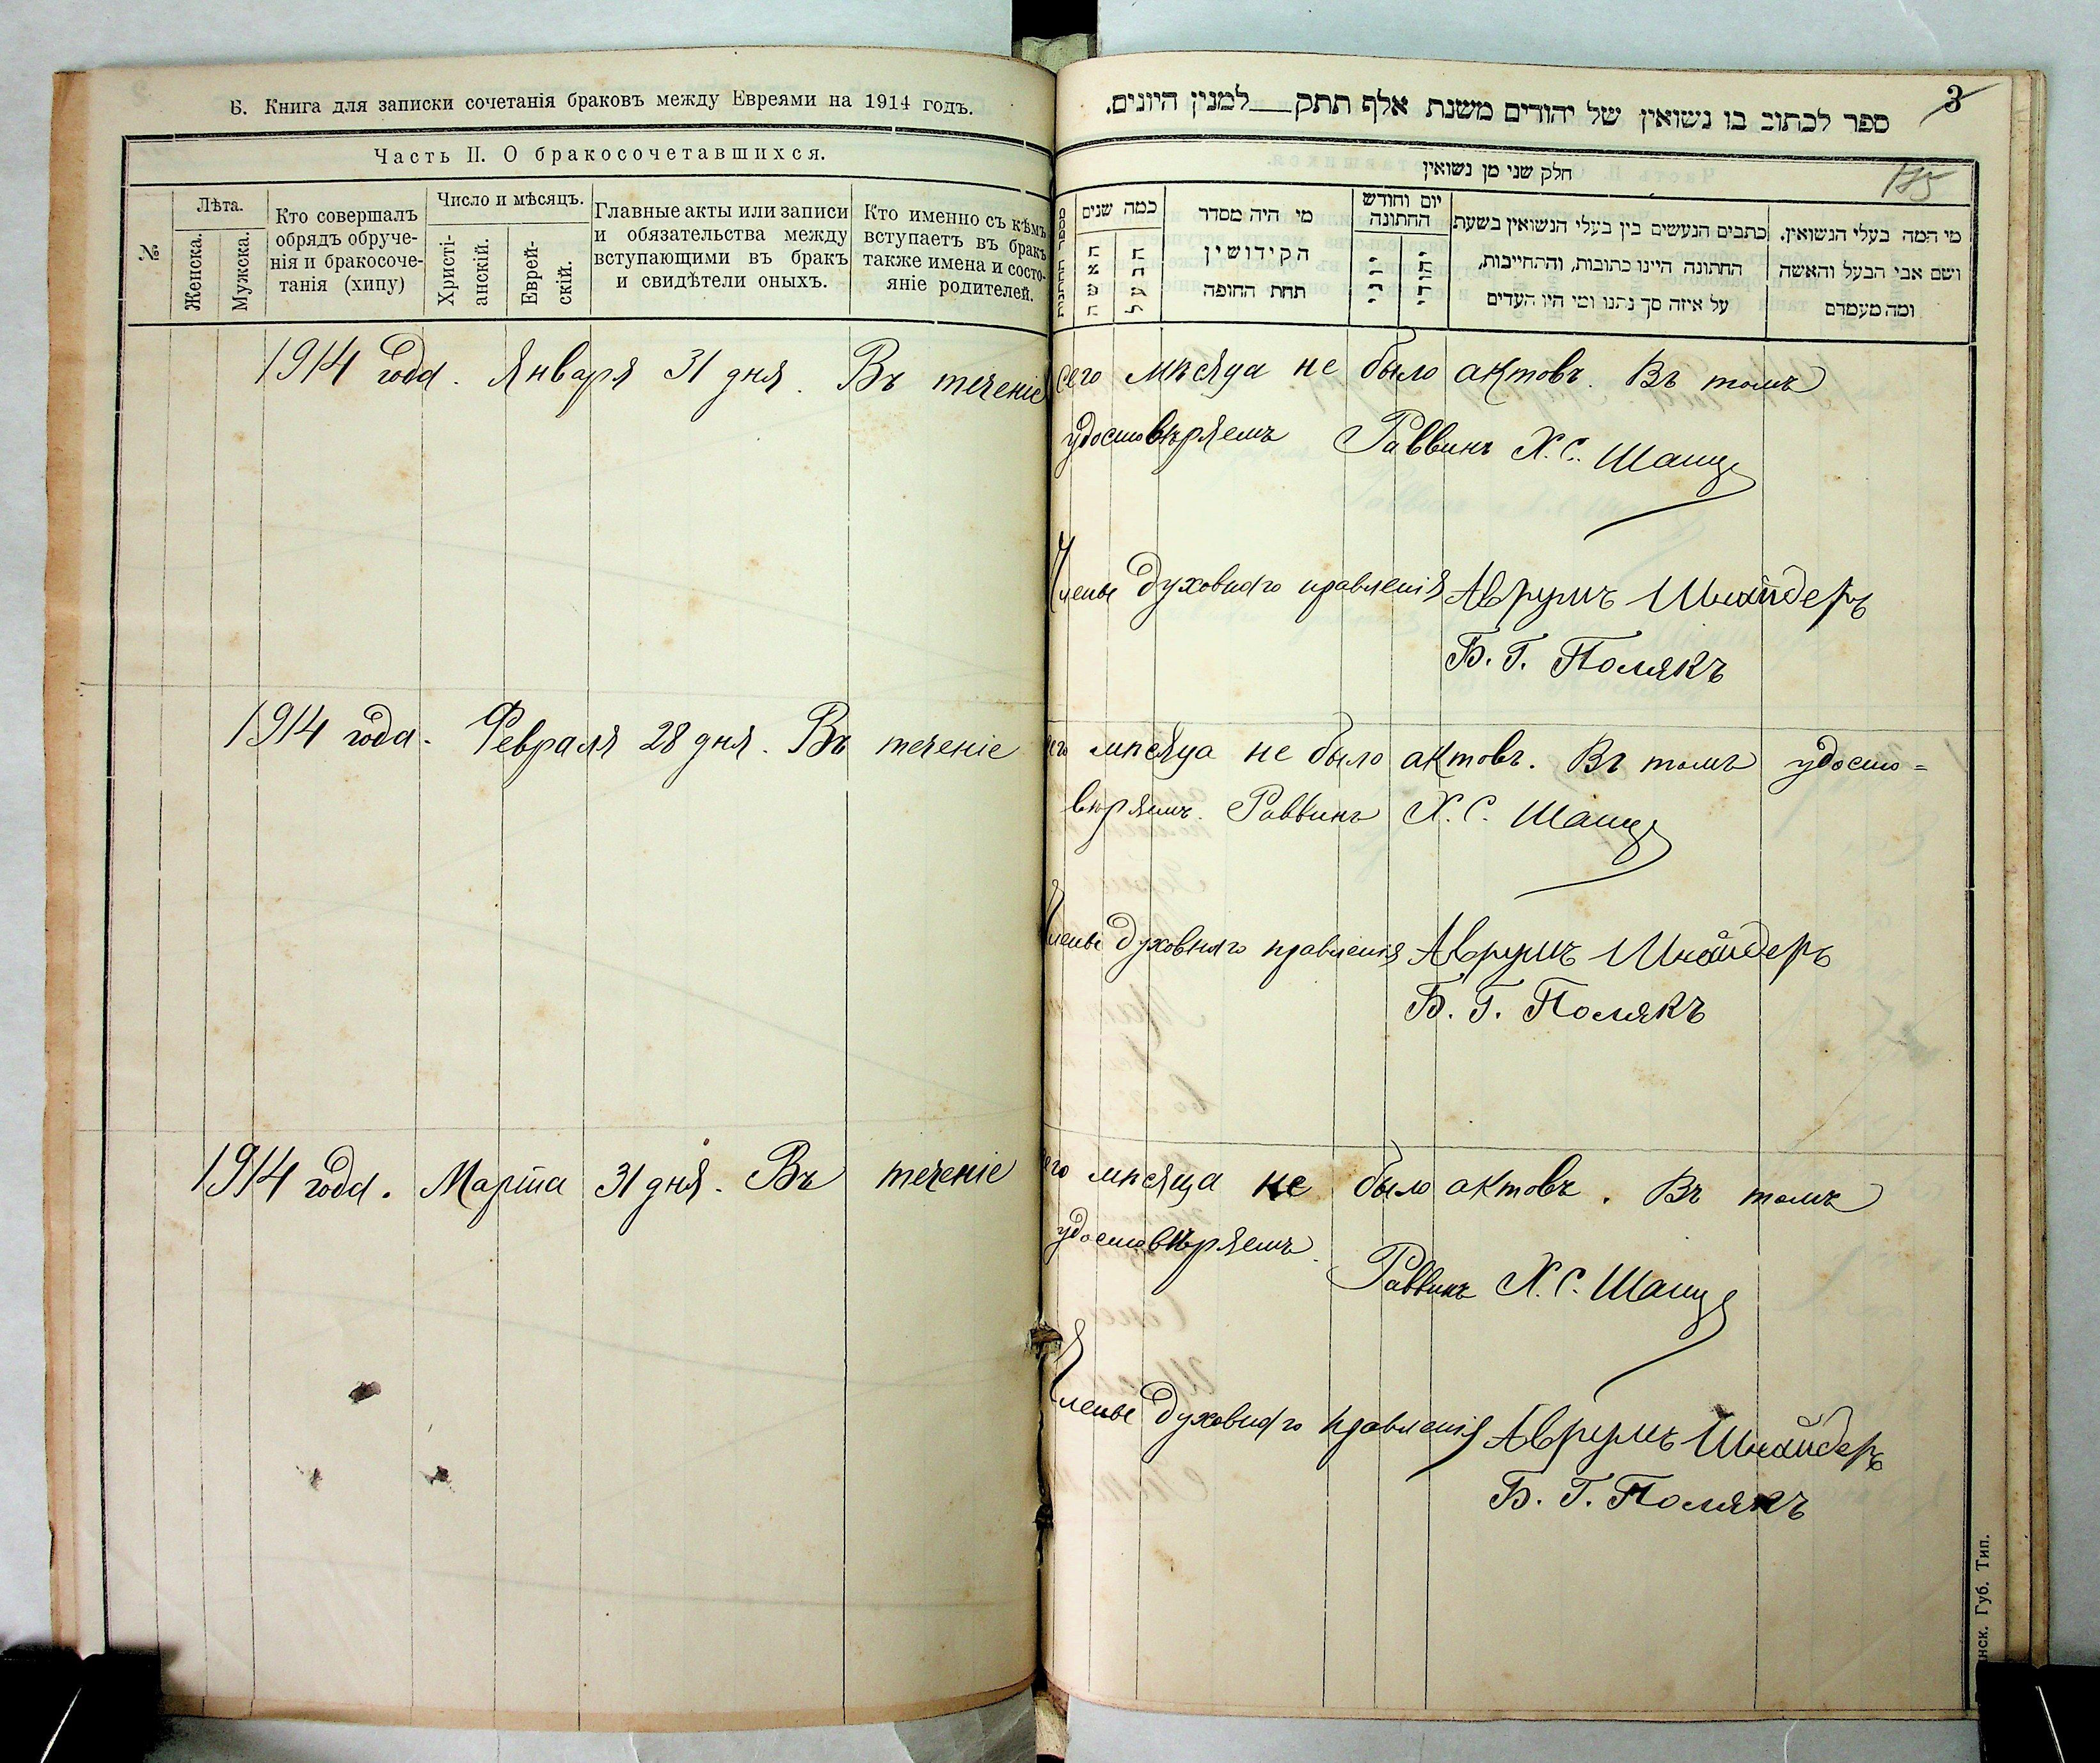 Б. Книга для записки сочетанія браковъ между Евреями на 1914 годъ.
Часть II. О бракосочетавшихся.
№
Лѣта.
Женска.
Мужска.
Кто совершалъ
обрядъ обруче-
нія и бракосоче-
танія (хипу)
Число и мѣсяцъ.
Христі-
анскій.
Еврей-
скій.
Главные акты или записи
и обязательства между
вступающими въ бракъ
и свидѣтели оныхъ.
Кто именно съ кѣмъ
вступаетъ въ бракъ
также имена и состо-
яніе родителей.
3
ספר לכתוב בו נשואין של יהודים משנת אלף תתק למנין היונים.
185
חלק שני מן נשואין
מי המה בעלי הנשואין.
ושם אבי הבעל והאשה
ומה מעמדם
כתבים הנעשים בין בעלי הנשואין בשעת
החתונה היינו כתובות, והתחייבות,
על איזה סך נתנו ומי היו העדים
יום וחודש
החתונה
יהודי
יוני
מי היה מסדר
הקידושין
תחת החופה
כמה שנים
הבעל
האשה
מספר החתונות
1914 года. Января 31 дня. Въ теченіе сего мѣсяца не было актовъ. Въ томъ
удостовѣряемъ Раввинъ Х. С. Шапц
Члены Духовнаго правленія Аврумъ Шнайдеръ
Б. Г. Полякъ
1914 года. Февраля 28 дня. Въ теченіе его мѣсяца не было актовъ. Въ томъ удосто=
вѣряемъ. Раввинъ Х. С. Шапц
Члены Духовнаго правленія Аврумъ Шнайдеръ
Б. Г. Полякъ
1914 года. Марта 31 дня. Въ теченіе его мѣсяца не было актовъ. Въ томъ
удостовѣряемъ. Раввинъ Х. С. Шапц
Члены Духовнаго правленія Аврумъ Шнайдеръ
Б. Г. Полякъ
нск. Губ. Тип.